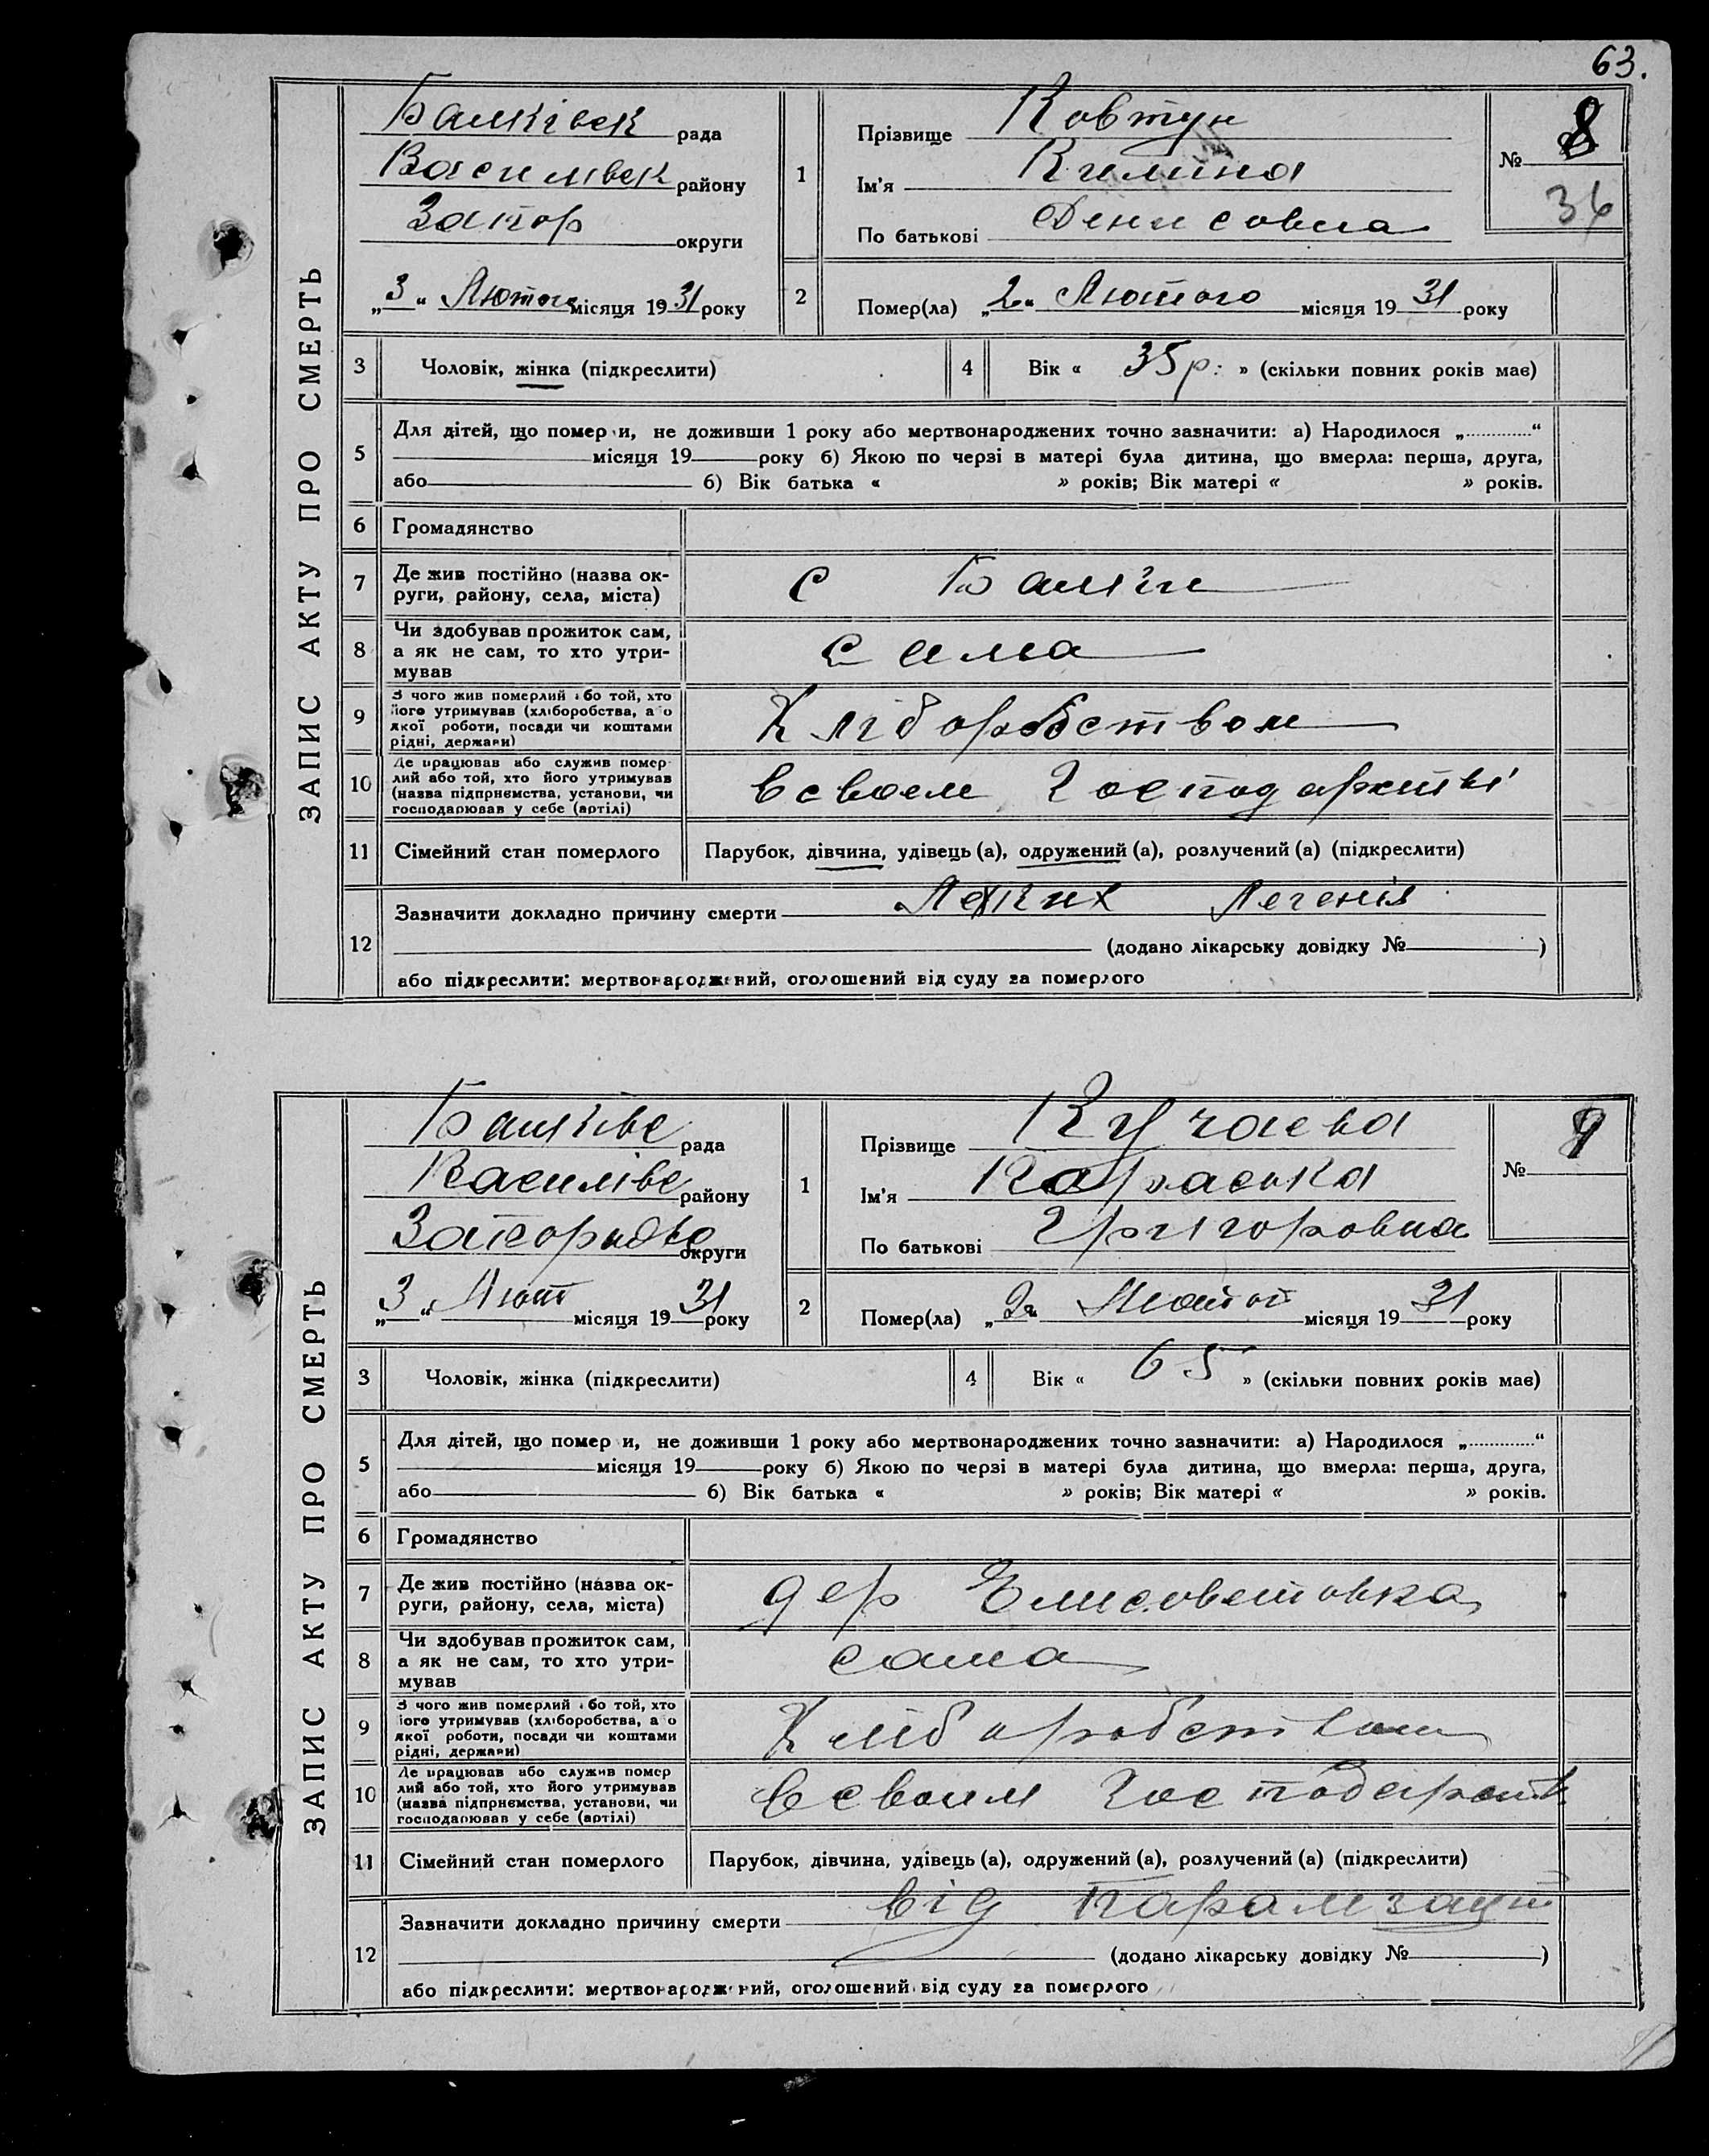 63.
ЗАПИС АКТУ ПРО СМЕРТЬ
Балківск рада
Василівск району
Запор округи
„3“ Лютого місяця 1931 року
1
Прізвище Ковтун
Ім'я Килина
По батькові Денисовна
№ 8
36
2
Помер(ла) „2“ Лютого місяця 1931 року
3 Чоловік, жінка (підкреслити)
4 Вік « 35 р. » (скільки повних років має)
5 Для дітей, що помер и, не доживши 1 року або мертвонароджених точно зазначити: а) Народилося „ “
місяця 19 року б) Якою по черзі в матері була дитина, що вмерла: перша, друга,
або б) Вік батька « » років; Вік матері « » років.
6 Громадянство
7 Де жив постійно (назва ок-
руги, району, села, міста)
с Балки
8 Чи здобував прожиток сам,
а як не сам, то хто утри-
мував
сама
9 З чого жив померлий або той, хто
його утримував (хліборобства, або
якої роботи, посади чи коштами
рідні, держави)
Хліборобством
10 Де працював або служив помер
лий або той, хто його утримував
(назва підприємства, установи, чи
господарював у себе (артілі)
в своем господарстві
11 Сімейний стан померлого
Парубок, дівчина, удівець (а), одружений (а), розлучений (а) (підкреслити)
12 Зазначити докладно причину смерти Легенія
(додано лікарську довідку № )
або підкреслити: мертвонароджений, оголошений від суду за померлого
ЗАПИС АКТУ ПРО СМЕРТЬ
Балківс рада
Василівс району
округи
„3“ Лют місяця 1931 року
1
Прізвище Кучаева
Ім'я
По батькові Григоровна
№ 9
2
Помер(ла) „2“ Лютог місяця 1931 року
3 Чоловік, жінка (підкреслити)
4 Вік « 65 » (скільки повних років має)
5 Для дітей, що помер и, не доживши 1 року або мертвонароджених точно зазначити: а) Народилося „ “
місяця 19 року б) Якою по черзі в матері була дитина, що вмерла: перша, друга,
або б) Вік батька « » років; Вік матері « » років.
6 Громадянство
7 Де жив постійно (назва ок-
руги, району, села, міста)
дер Елисоветовка
8 Чи здобував прожиток сам,
а як не сам, то хто утри-
мував
сама
9 З чого жив померлий або той, хто
його утримував (хліборобства, або
якої роботи, посади чи коштами
рідні, держави)
Хліборобством
10 Де працював або служив помер
лий або той, хто його утримував
(назва підприємства, установи, чи
господарював у себе (артілі)
в своим господарств
11 Сімейний стан померлого
Парубок, дівчина, удівець (а), одружений (а), розлучений (а) (підкреслити)
12 Зазначити докладно причину смерти від
(додано лікарську довідку № )
або підкреслити: мертвонароджений, оголошений від суду за померлого